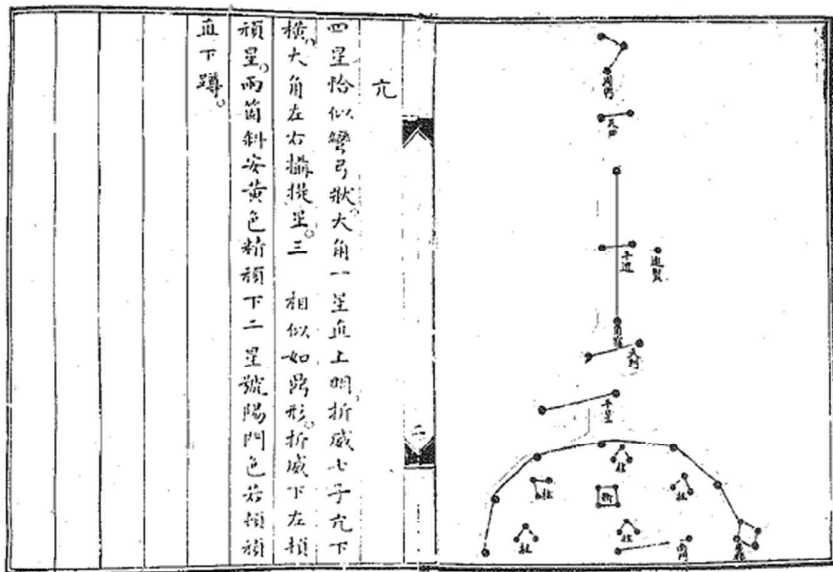 周鼎
天田
進賢
平道
角宿
天門
平星
柱
柱
柱
衡
柱
柱
南門
庫樓
二
亢
四星恰似彎弓狀。大角一星直上明。折威七子亢下
橫。大角左右攝提星。三 相似如鼎形。折威下左頓
頑星。兩箇斜安黃色精頑下二星號陽門色若頓頑
直下蹲。